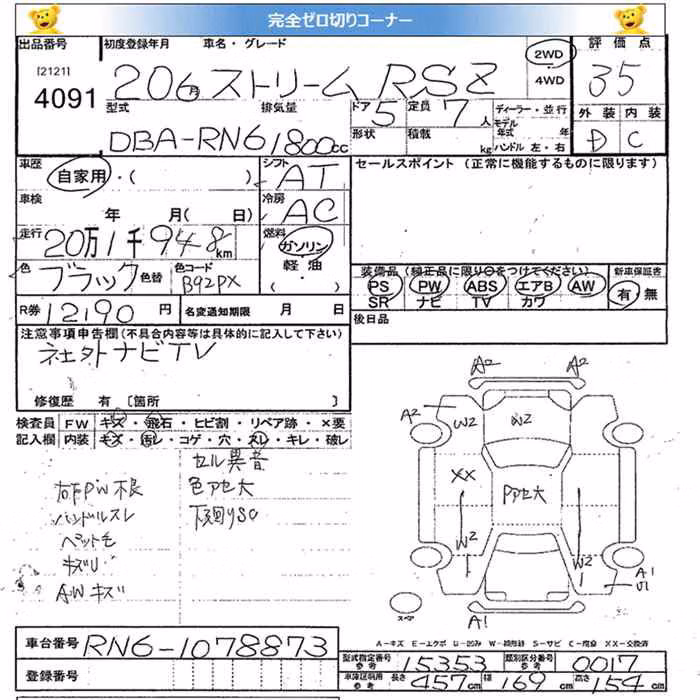 完全ゼロ切りコーナー
出品番号 初度登録年月 車名・グレード 評価点
[2121]
4091
206月 ストリーム RSZ
2WD
4WD
35
型式 排気量 ドア 5 定員 7人 ディーラー・並行
モデル
年式 年
形状 積載 kg ハンドル 左・右
外装 内装
D C
DBA-RN6 1800cc
車歴 自家用・( ) シフト AT
セールスポイント (正常に機能するものに限ります)
車検 年 月( 日) 冷房 AC
走行 20万1千948km 燃料 ガソリン
軽・油
色 ブラック 色替 色コード B92PX
装備品(純正品に限り○をつけてください) 新車保証書
PS PW ABS エアB AW 有・無
SR ナビ TV カワ
R券 12190円 名変通知期限 月 日
後日品
注意事項申告欄(不具合内容等は具体的に記入して下さい)
社外ナビTV
修復歴 有 〔箇所 〕
検査員 FW キズ・飛石・ヒビ割・リペア跡・×要
記入欄 内装 キズ・汚レ・コゲ・穴・スレ・キレ・破レ
セル異音
色アセ大
ハンドルスレ
ペット毛
キズU
AWキズ
A2 A2
A2
W2 W2
XX Pアセ大
W2 W2
A1
U1
A1
スペア
A-キズ E-エクボ U-凹み W-補修跡 S-サビ C-腐食 XX-交換済
車台番号 RN6-1078873
型式指定番号 参考 15353 類別区分番号 参考 0017
登録番号
車庫証明用 参考 長さ 457cm 幅 169cm 高さ 154cm